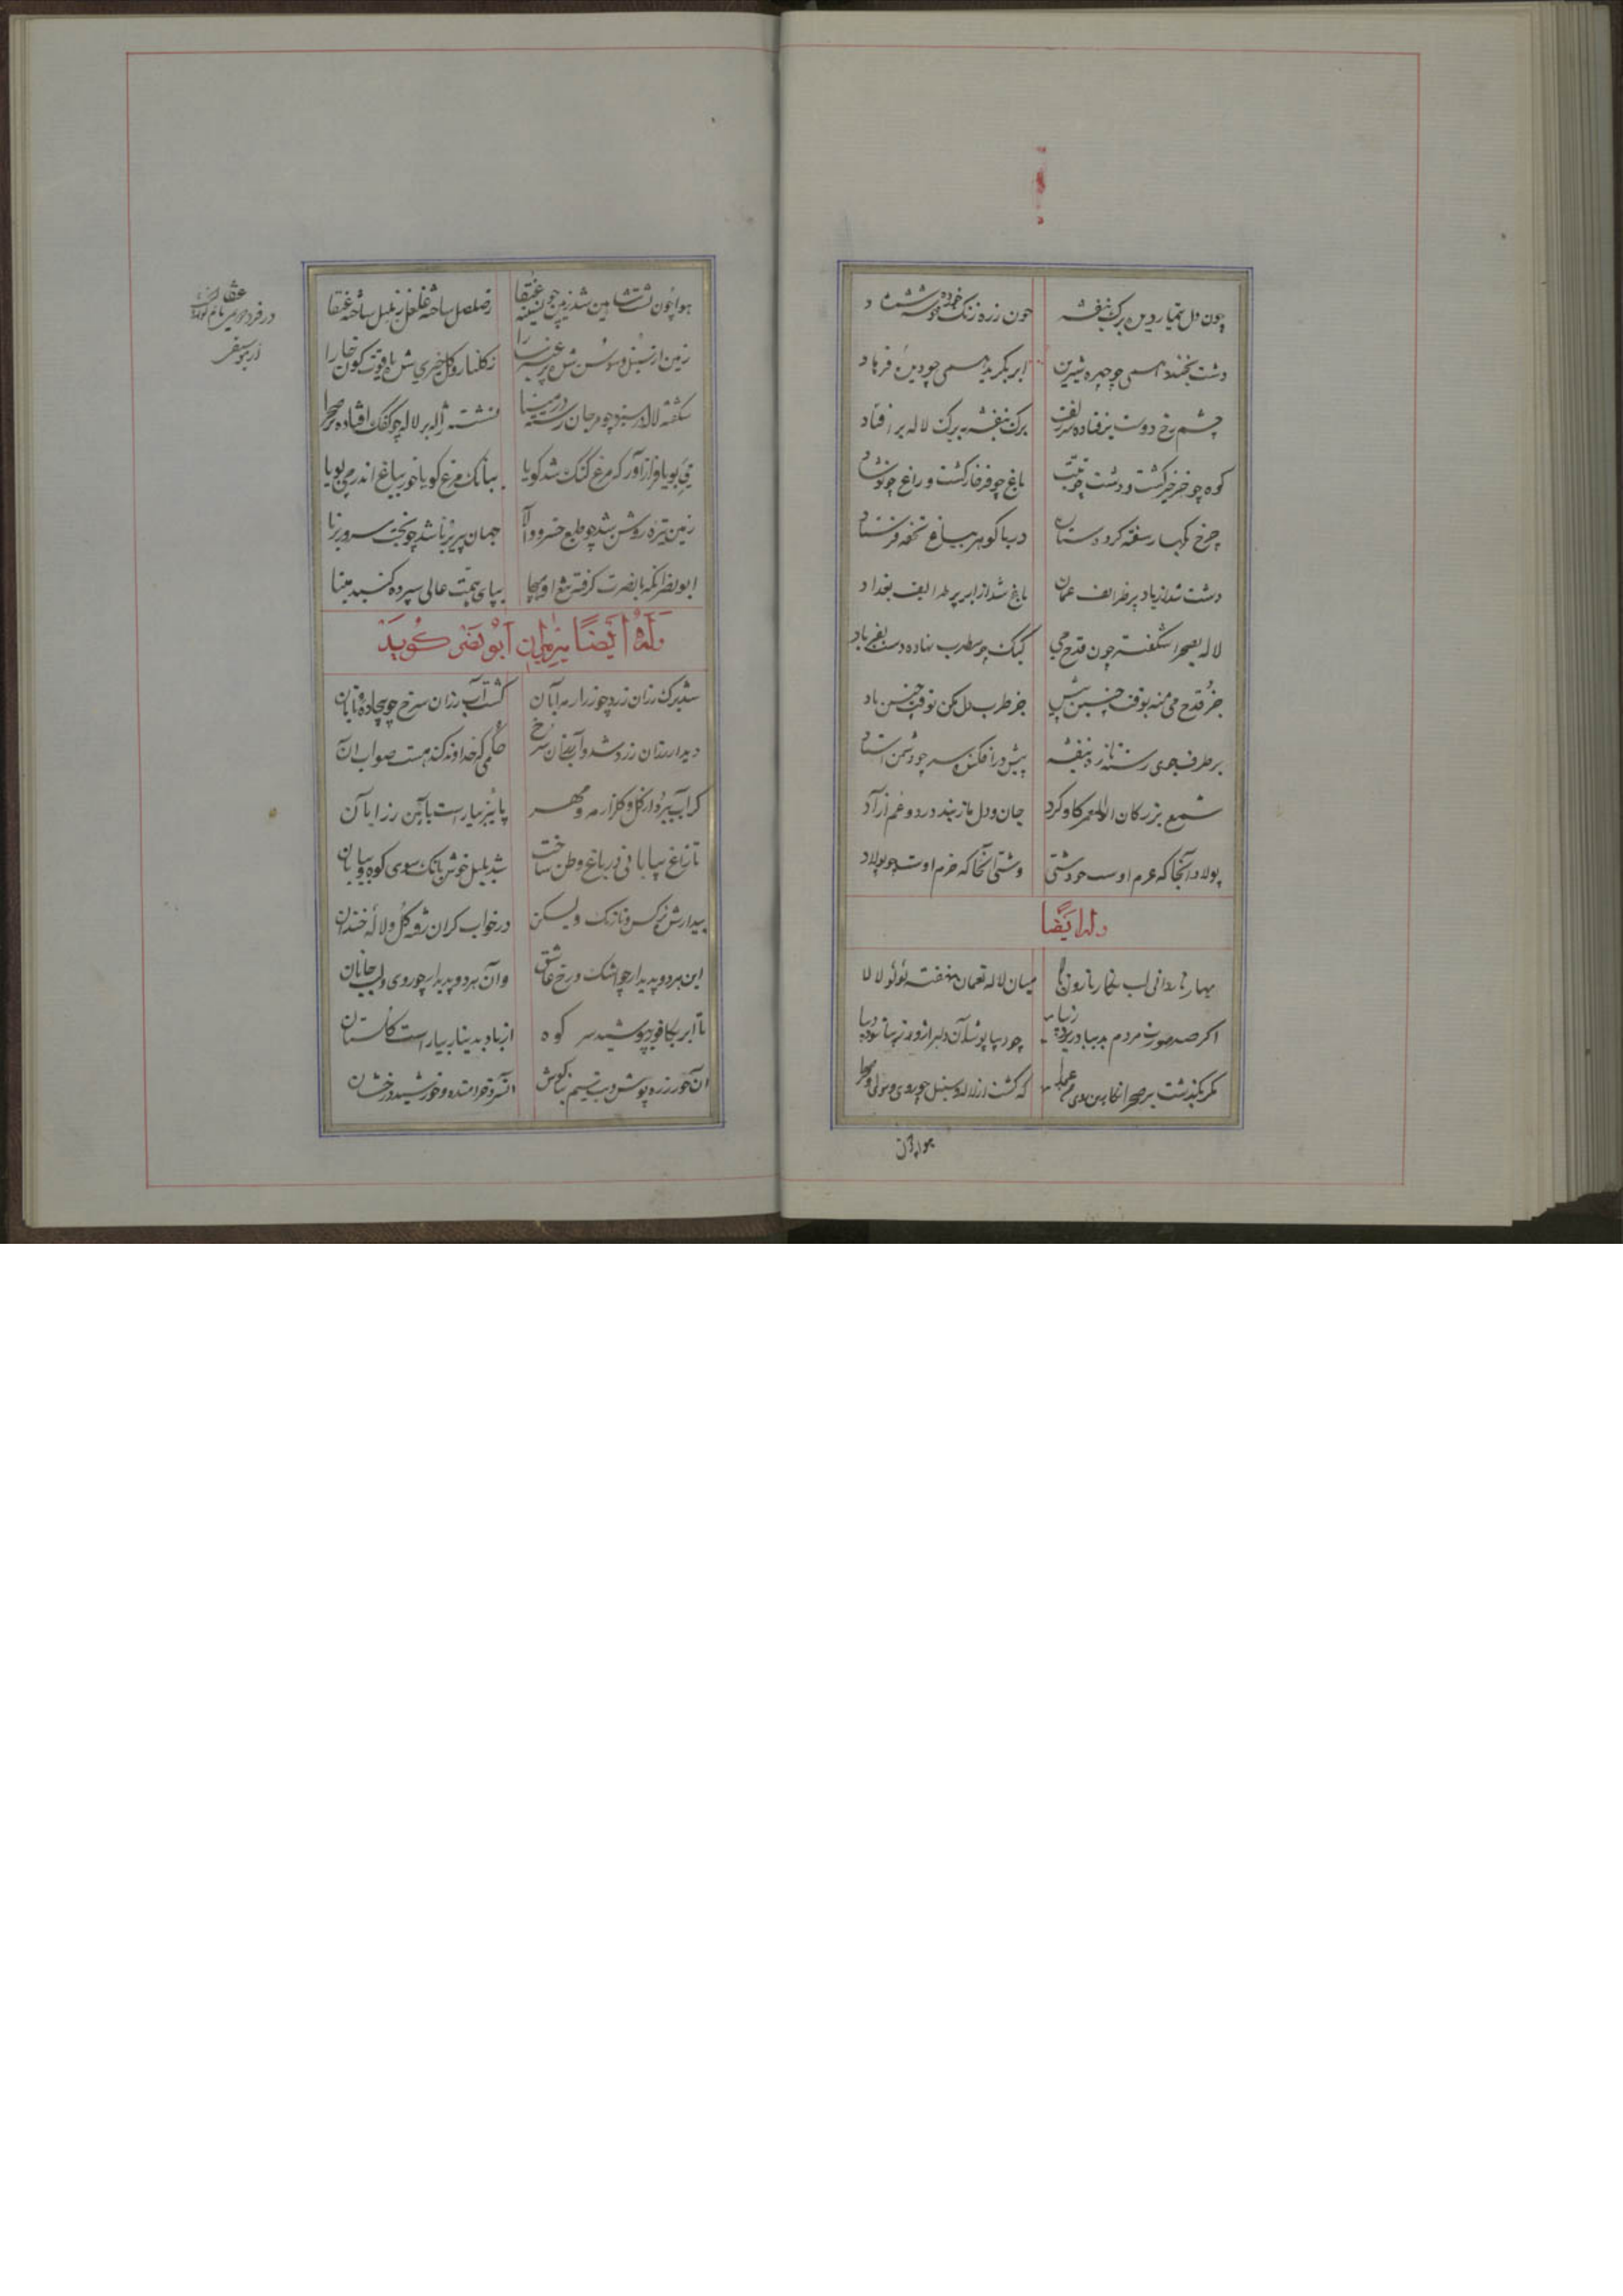 چون دل تیمار دیده برک بنفشه
چون زره زنک خورده شوشه شمشاد
دشت بخندد همی چو چهره شیرین
ابر بکرید همی چو دیده فرهاد
چشم رخ دوست برفتاده سر زلف
برک بنفشه به برک لاله بر افتاد
کوه چو خرخیز کشت و دشت چو تبت
باغ چو فرخار کشت و راغ چو نوشاد
چرخ بکهسار
دریا کوهر بباغ تحفه فرستاد
دشت شد از باد پر طرایف عمان
باغ شد از ابر پر طرایف بغداد
لاله بصحرا شکفته چون قدح می
کبک چو مطرب نهاده دست بفریاد
جز قدح می منه بوقت چنین پیش
جز طرب دل مکن بوقت چنین یاد
بر طرف جوی رسته تازه بنفشه
پیش در افکنده سر چو دشمن استاد
شمع بزرکان ابوالمعمر کاو کرد
جان و دل ما ز بند درد و غم آزاد
پولاد آنجا که عزم اوست چو دشتی
دشتی آنجا که حزم اوست چو پولاد
وله ایضا
میان لاله نعمان نهفته لؤلؤ لالا
اکر صد صورت مردم بدیبا در پدید
چو دیبا پوشد آن دلبر
مکر بکذشت بر صحرا نکارین روی
که کشت از لاله و سنبل چو روی و موی او صحرا
هوا چون
هوا چون پشت شاهین شد زمین چون سینه عنقا
ز صلصل ساخته غلغل ز بلبل ساخته عنقا
زمین از سنبل و سوسن شده پر عنبر سارا
ز کلنار و کل خیری شده یاقوت کون خارا
شکفته لاله در سبزه چو مرجان رسته در مینا
نشسته ژاله بر لاله چو کنک افتاده در صحرا
می بویا فراز آور که مرغ کنک شد کویا
ببانک مرغ کویا خور بباغ اندر می بویا
زمین تیره روشن شد چو طبع خسرو والا
جهان پیر برنا شد چو بخت سرور برنا
ابو نصر آنکه با نصرت
بپای همت عالی سپرده کنبد مینا
وله ایضا ابو نصر کوید
شد برک رزان زرد چو زر از مه آبان
کشت آب رزان سرخ چو بیجاده تابان
دیدار رزان زرد شد و آب رزان سرخ
حکمی که خداوند کند هست صواب آن
کر آب ببرد از کل و کلزار مه مهر
پائیز بیاراست بآیین رز آبان
تا زاغ بیابانی در باغ وطن ساخت
شد بلبل خوش بانک سوی کوه و بیابان
بیدار شده نرکس و نارنک ولیکن
در خواب کران رفته کل و لاله خندان
این هر دو پدیدار چو اشک و رخ عاشق
وان هر دو پدیدار چو روی و لب جانان
تا ابر بکافور بپوشید سر کوه
از باد بدینار بیاراست کلستان
آن حور زره پوش و بت سیم بناکوش
آن سرو خرامنده و خورشید درخشان